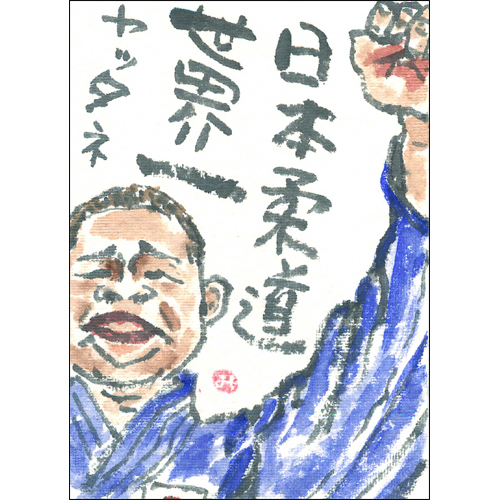 日本柔道
世界一
ヤッタネ